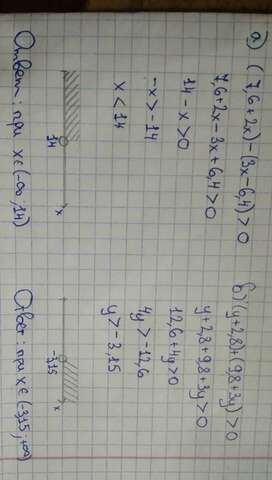 а) (7,6+2x)-(3x-6,4)>0
7,6+2x-3x+6,4>0
14-x>0
-x>-14
x<14
14 x
Ответ: при x∈(-∞;14)
б) (y+2,8)+(9,8+3y)>0
y+2,8+9,8+3y>0
12,6+4y>0
4y>-12,6
y>-3,15
-3,15 x
Ответ: при x∈(-3,15;+∞)